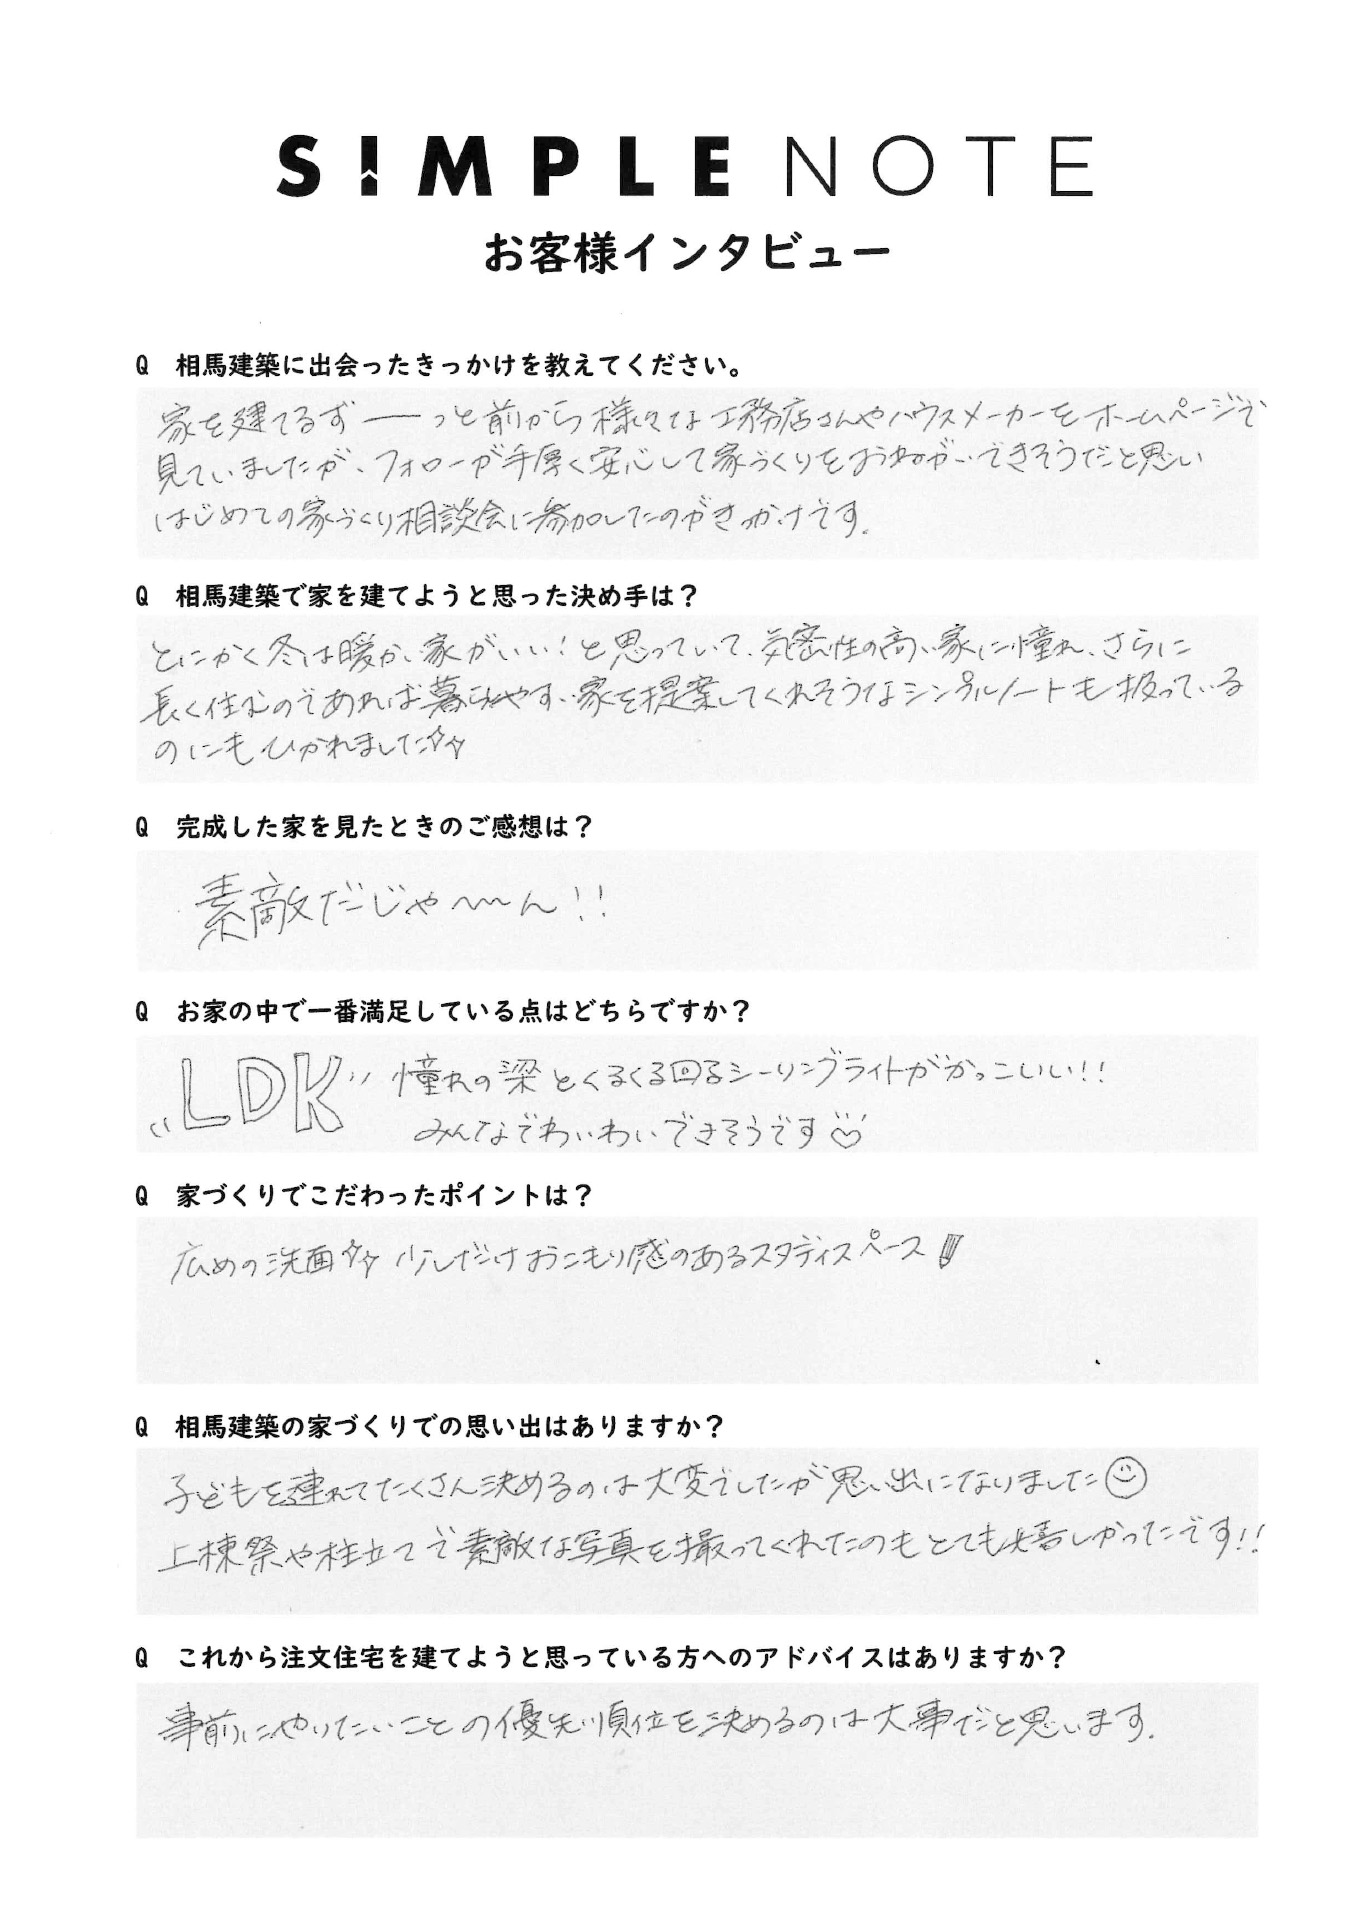 SIMPLE NOTE
お客様インタビュー
Q 相馬建築に出会ったきっかけを教えてください。
家を建てるず――っと前から様々な工務店さんやハウスメーカーをホームページで
見ていましたが、フォローが手厚く安心して家づくりをおねがいできそうだと思い
はじめての家づくり相談会に参加したのがきっかけです.
Q 相馬建築で家を建てようと思った決め手は？
とにかく冬は暖かい家がいい！と思っていて、気密性の高い家に憧れ、さらに
長く住むのであれば暮らしやすい家を提案してくれそうなシンプルノートも扱っている
のにもひかれました☆☆
Q 完成した家を見たときのご感想は？
素敵だじゃ〜〜ん！！
Q お家の中で一番満足している点はどちらですか？
"LDK" 憧れの梁とくるくる回るシーリングライトがかっこいい！！
みんなでわいわいできそうです
Q 家づくりでこだわったポイントは？
広めの洗面☆☆ 少しだけおこもり感のあるスタディスペース
Q 相馬建築の家づくりでの思い出はありますか？
子どもを連れてたくさん決めるのは大変でしたが思い出になりました☺
上棟祭や柱立てで素敵な写真を撮ってくれたのもとても嬉しかったです！！
Q これから注文住宅を建てようと思っている方へのアドバイスはありますか？
事前にやりたいことの優先順位を決めるのは大事だと思います.